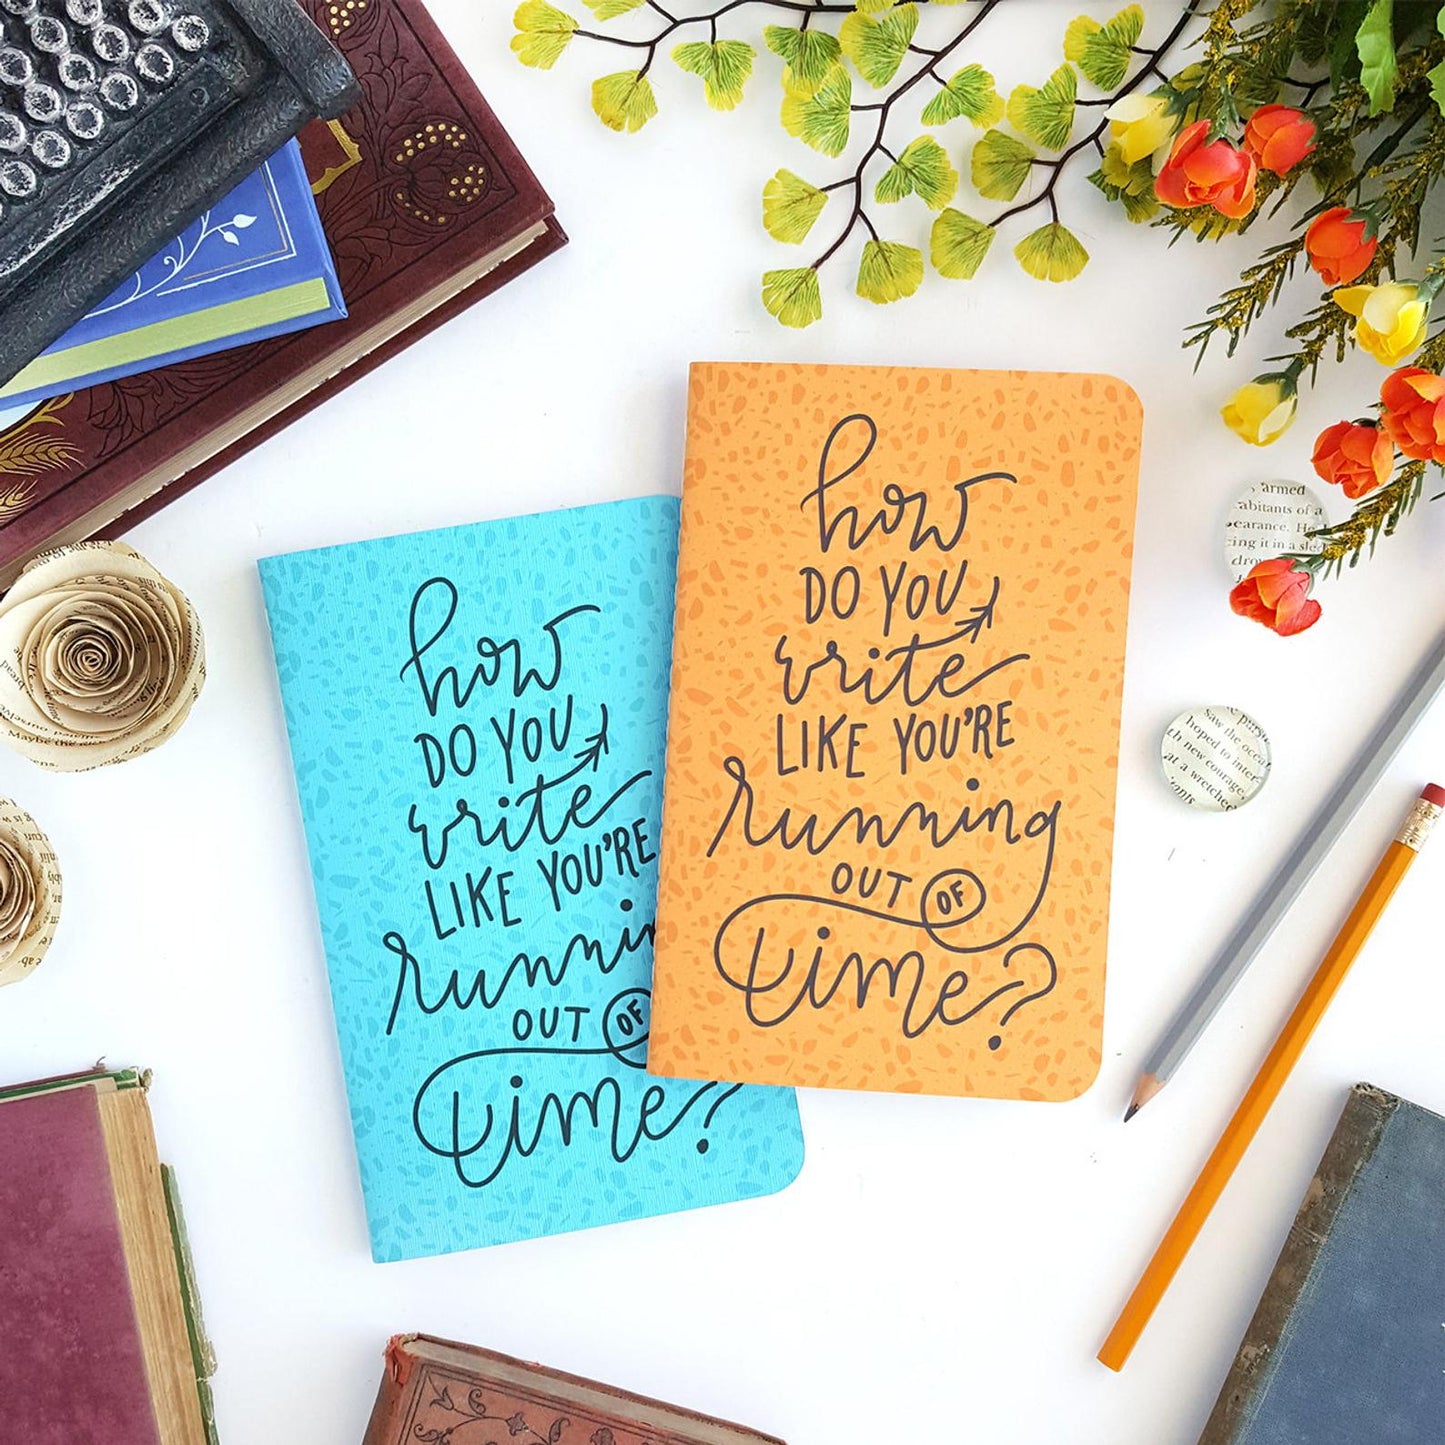 how
DO YOU
write
LIKE YOU'RE
running
OUT OF
time?
how
DO YOU
write
LIKE YOU'RE
runnin
OUT OF
time?
armed
abitants of a
earance. He
ing it in a sle
saw the occa
hoped to inter
th new courage,
at a wretched
Maybe the